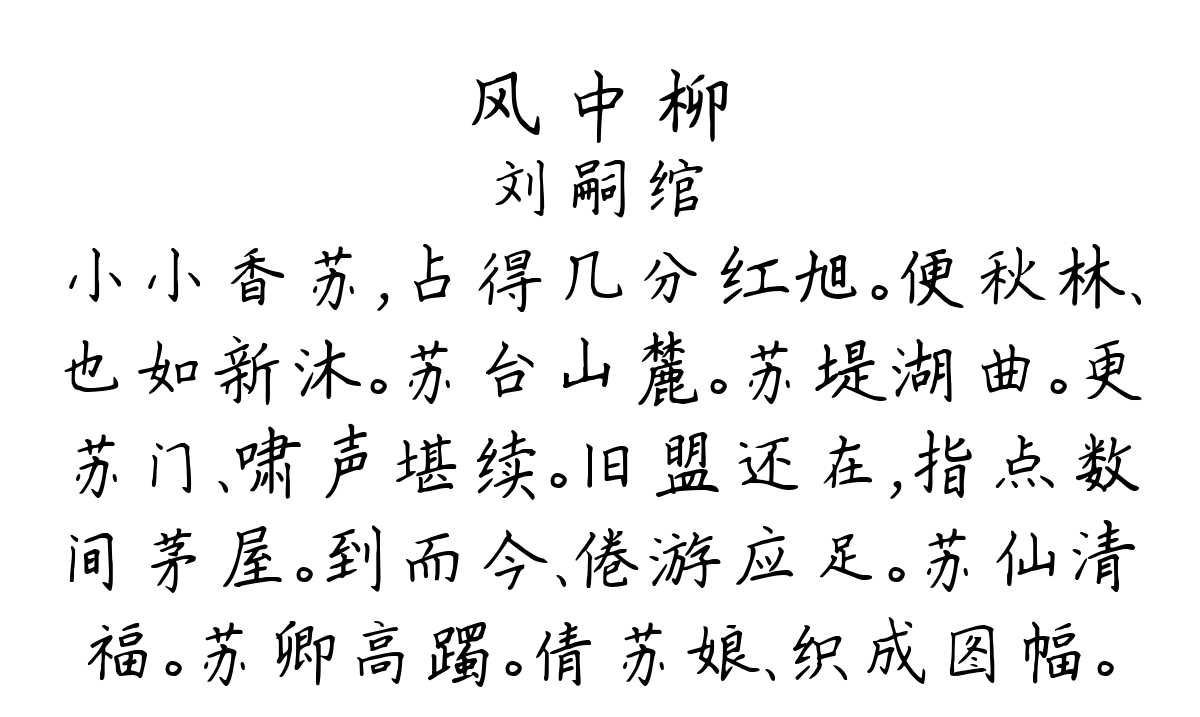 风中柳
刘嗣绾
小小香苏,占得几分红旭。便秋林、
也如新沐。苏台山麓。苏堤湖曲。更
苏门、啸声堪续。旧盟还在,指点数
间茅屋。到而今、倦游应足。苏仙清
福。苏卿高躅。倩苏娘、织成图幅。